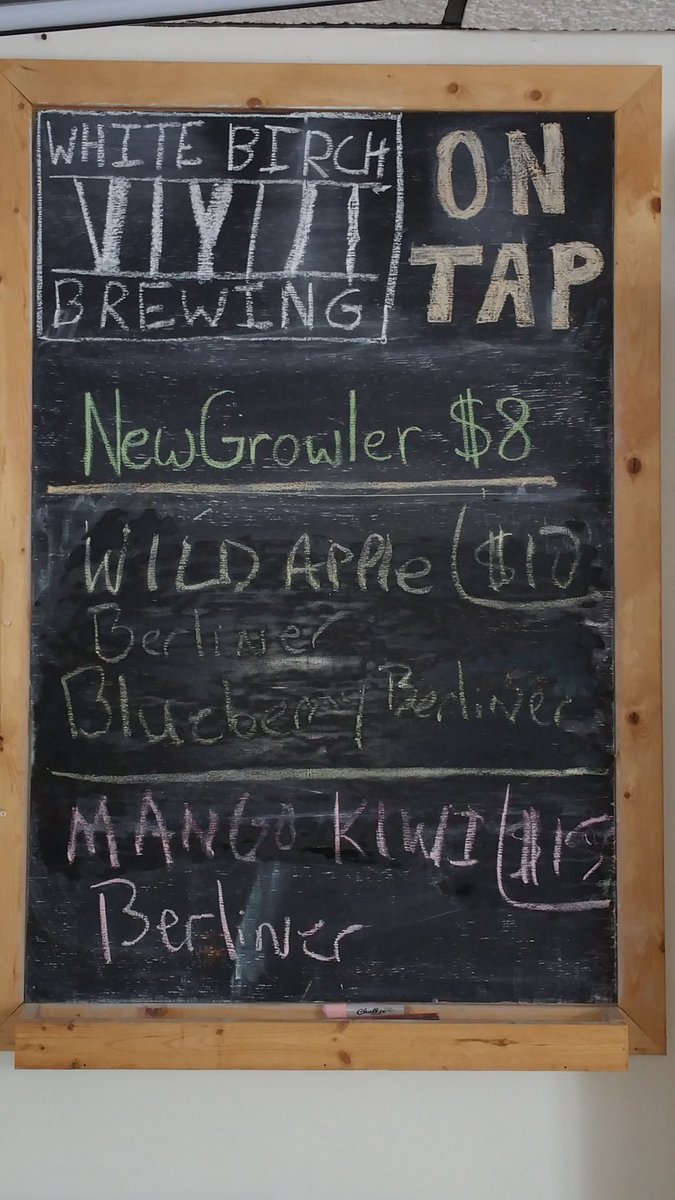 WHITE BIRCH
BREWING
ON
TAP
New Growler $8
WILD Apple $10
Berliner
Blueberry Berliner
MANGO KIWI $15
Berliner